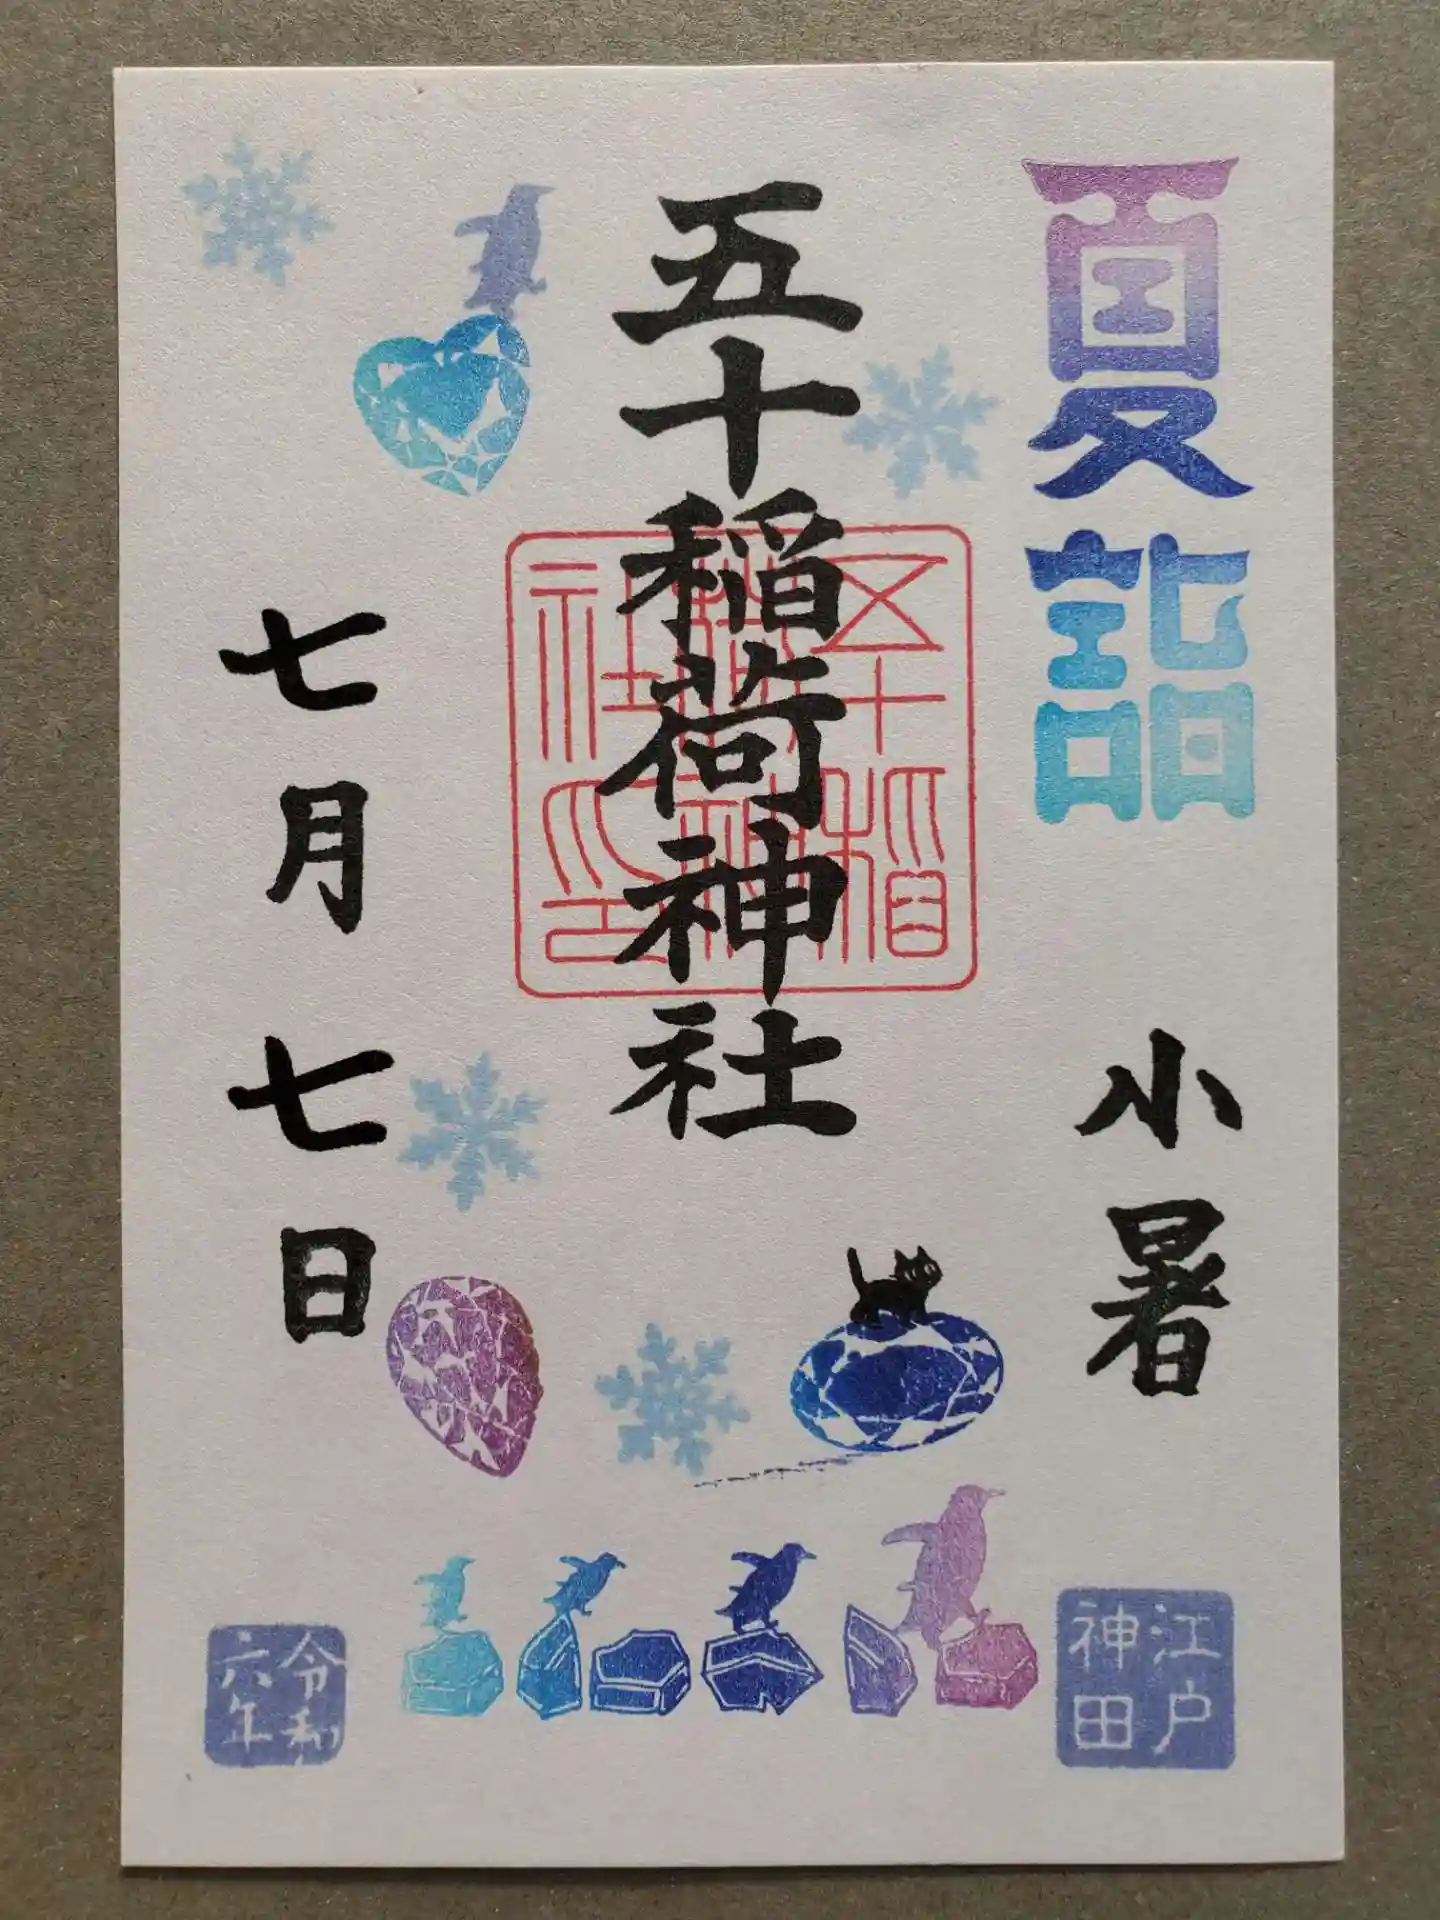 夏詣
小暑
江戸
神田
五十稲荷神社
五十稲
荷神
社之印
七月七日
令和
六年